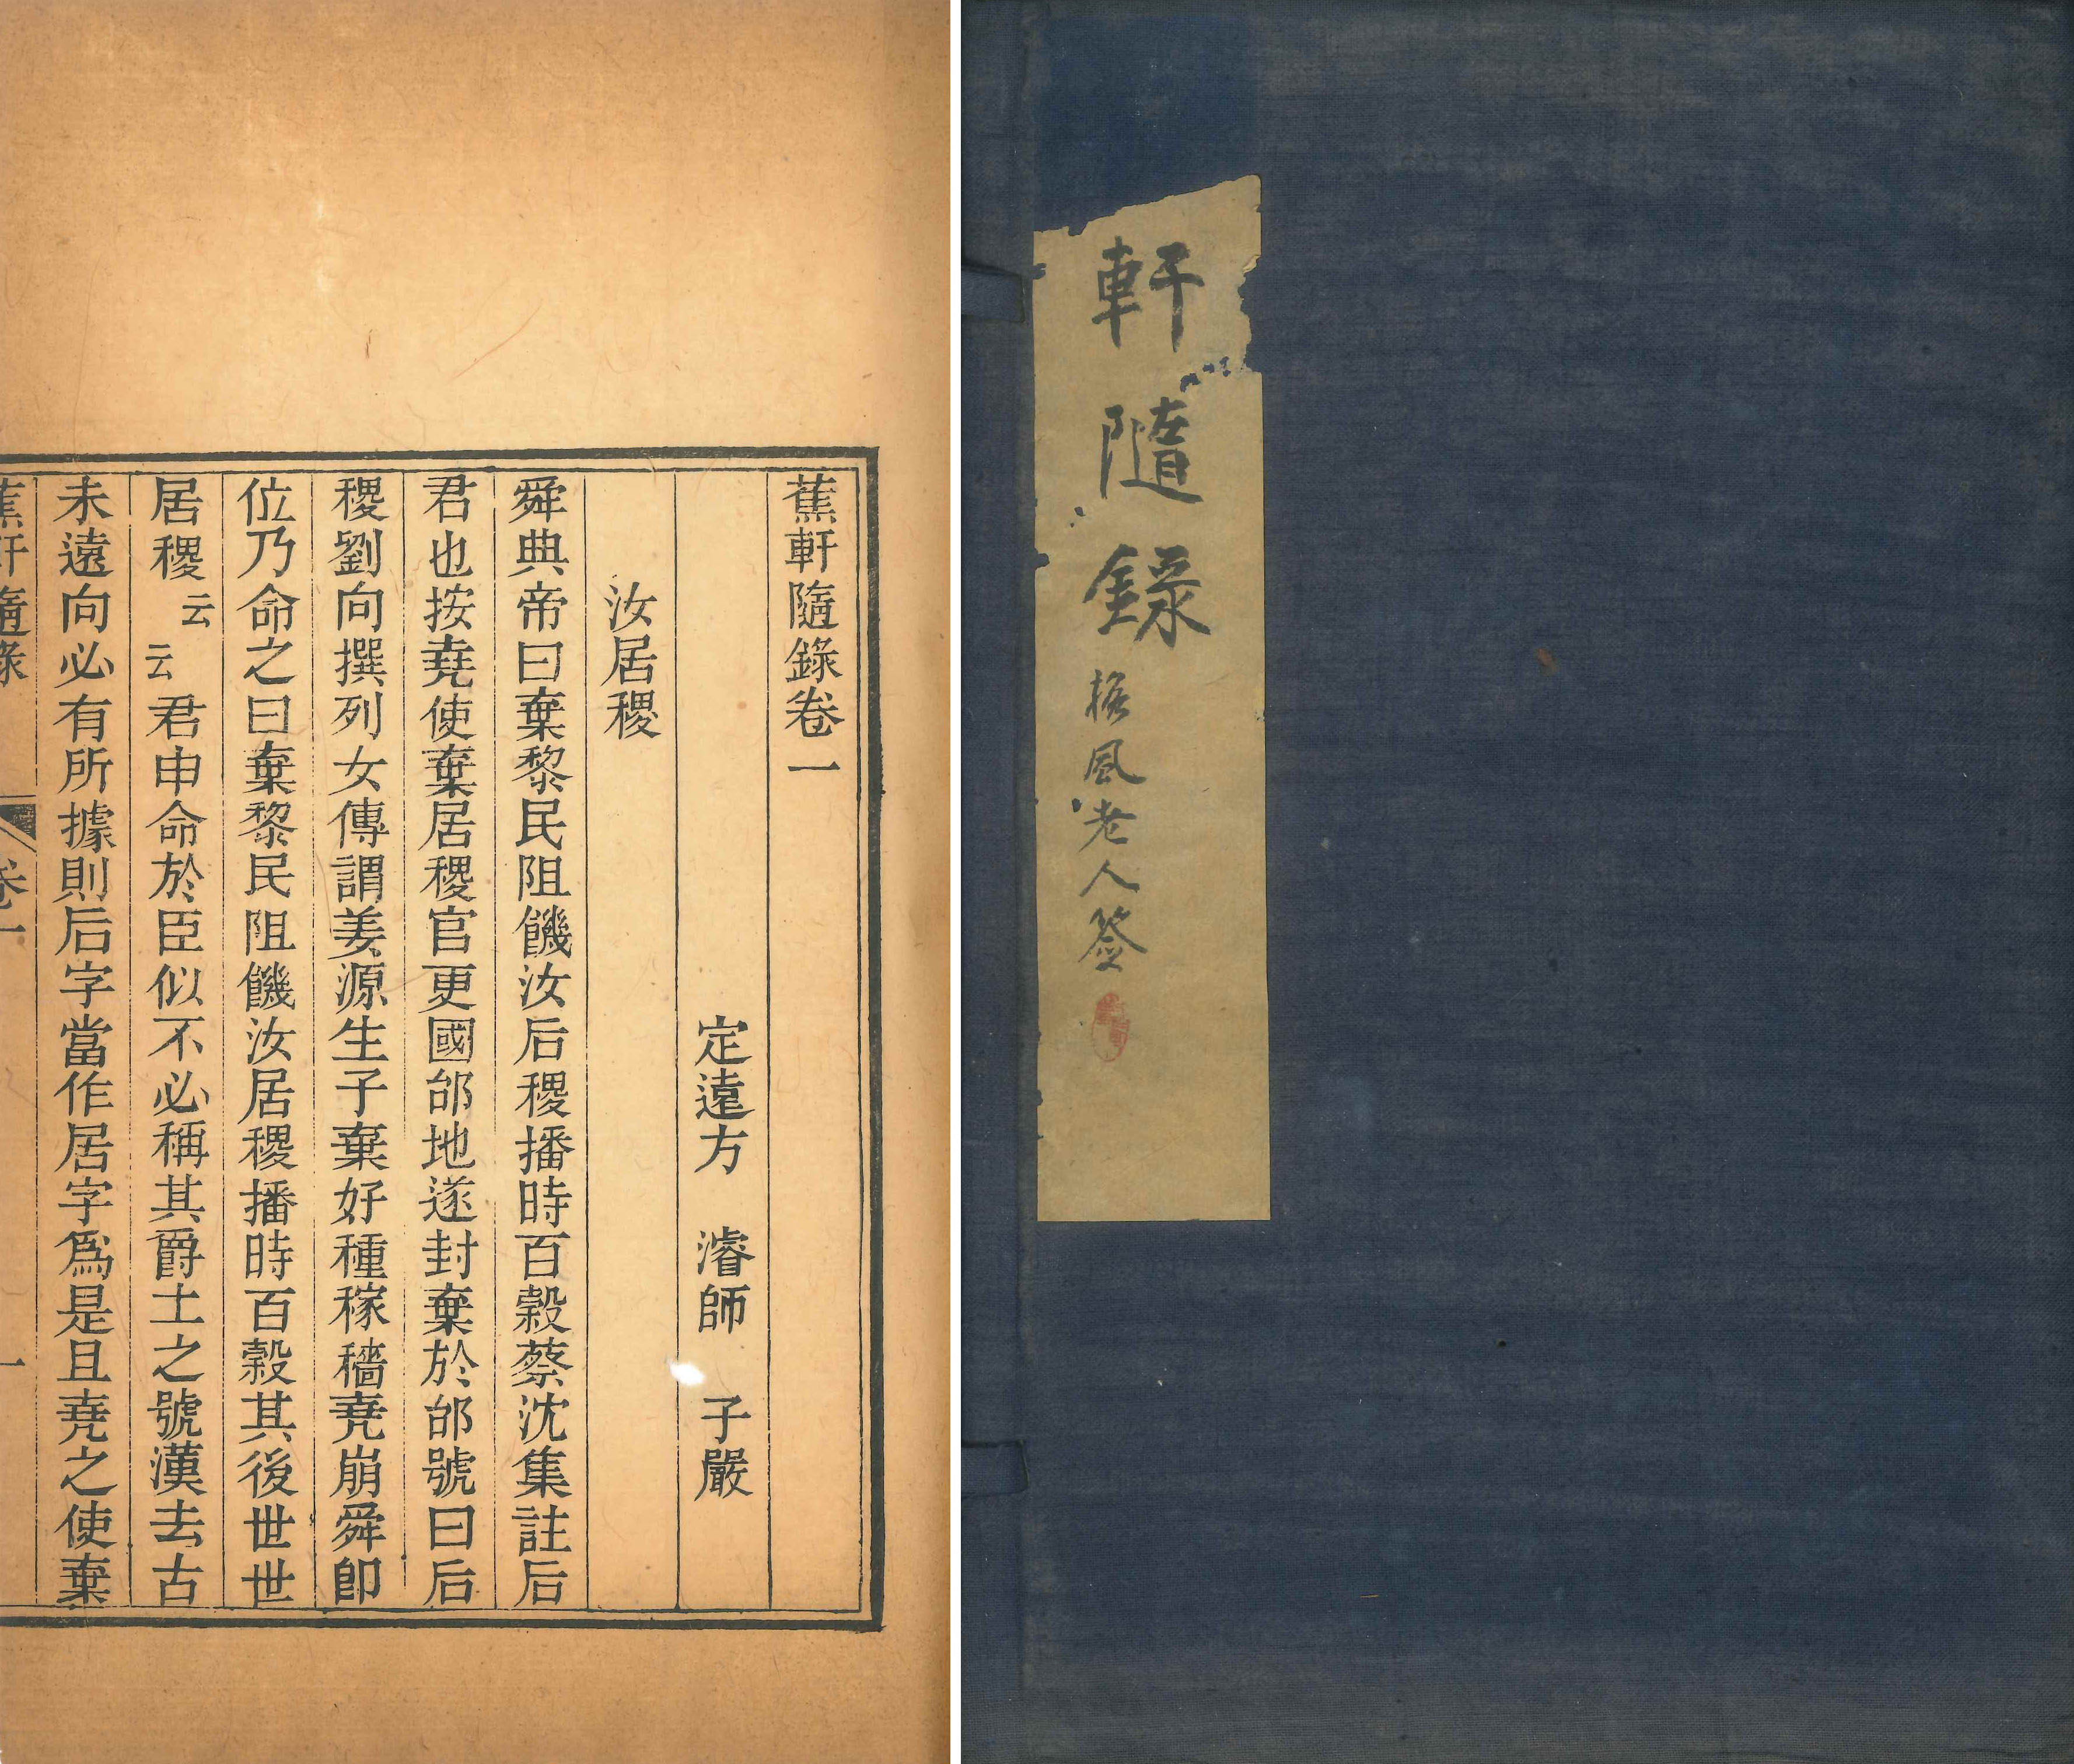 蕉軒隨錄卷一
定遠方 濬師 子嚴
汝居稷
舜典帝曰棄黎民阻饑汝后稷播時百穀蔡沈集註后
君也按堯使棄居稷官更國邰地遂封棄於邰號曰后
稷劉向撰列女傳謂姜源生子棄好種稼穡堯崩舜卽
位乃命之曰棄黎民阻饑汝居稷播時百穀其後世世
居稷云云君申命於臣似不必稱其爵土之號漢去古
未遠向必有所據則后字當作居字爲是且堯之使棄
蕉軒隨錄 卷一 一
軒隨錄
風老人簽